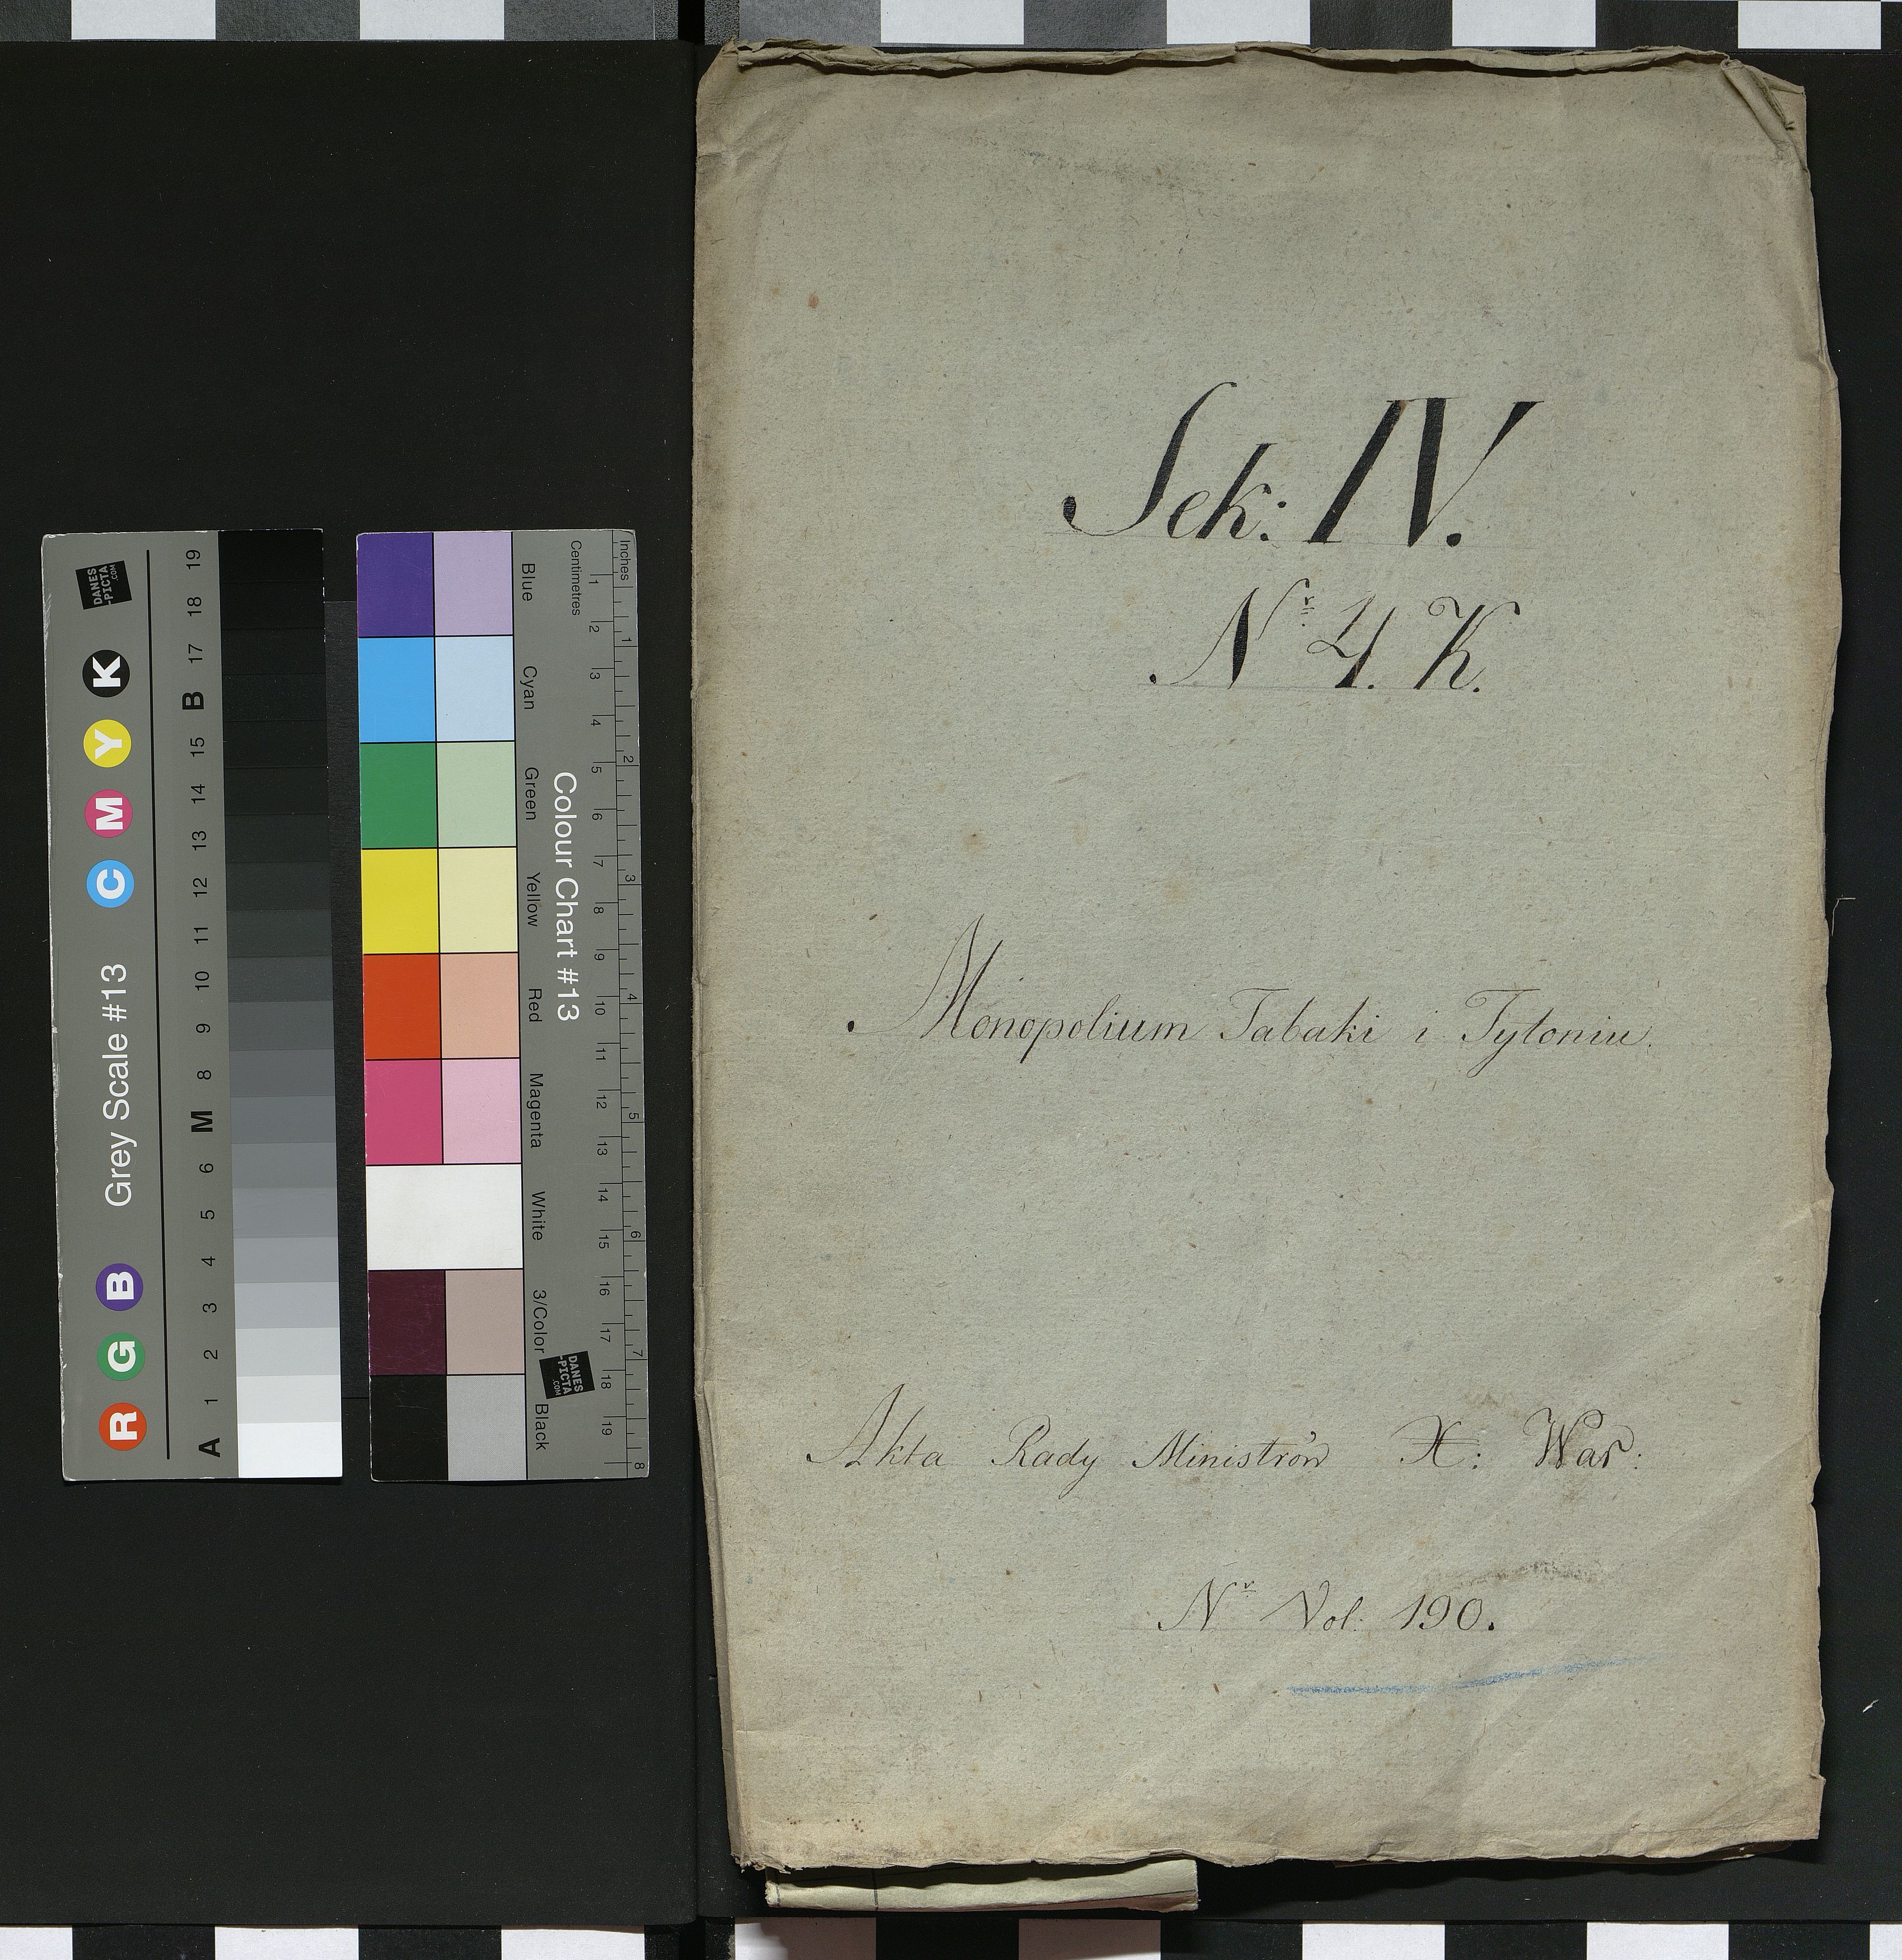 Sek: IV.
Nr 4. K.
Monopolium Tabaki i Tytoniu.
Akta Rady Ministrów X: War:
Nr Vol: 190.
Grey Scale #13
R G B C M Y K
A 1 2 3 4 5 6 M 8 9 10 11 12 13 14 15 B 17 18 19
DANES
-PICTA
.COM
Colour Chart #13
Blue Cyan Green Yellow Red Magenta White 3/Color Black
Centimetres 1 2 3 4 5 6 7 8 9 10 11 12 13 14 15 16 17 18 19
Inches 1 2 3 4 5 6 7 8
DANES
-PICTA
.COM